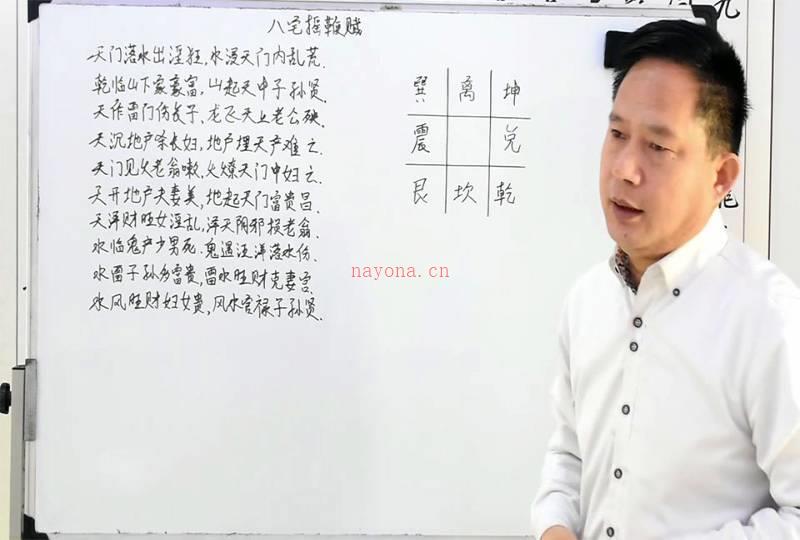 八宅摇鞭赋
天门落水出淫狂,水浸天门内乱荒.
乾临山下家豪富,山起天中子孙贤.
天作雷门伤长子,龙飞天上老公殃.
天沉地户杀长妇,地户埋天产难亡.
天门见火老翁嗽,火燎天门中妇亡.
天开地户夫妻美,地起天门富贵昌.
天泽财旺女淫乱,泽天阴邪损老翁.
水临鬼户少男死.鬼遇汪洋落水伤.
水雷子孙多富贵,雷水旺财克妻宫.
水风旺财妇女贵,风水官禄子孙贤.
巽 离 坤
震 兑
艮 坎 乾
nayona.cn